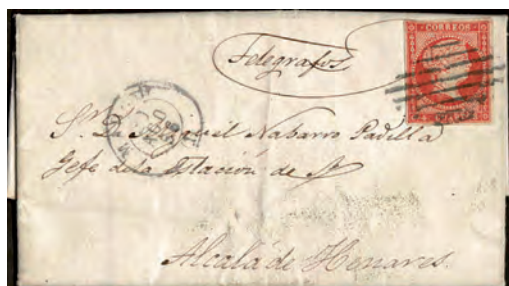 CORREOS
Telegrafos
Sr. D. Miguel Nabarro Padilla
Gefe de la Estacion de
Alcalá de Henares.